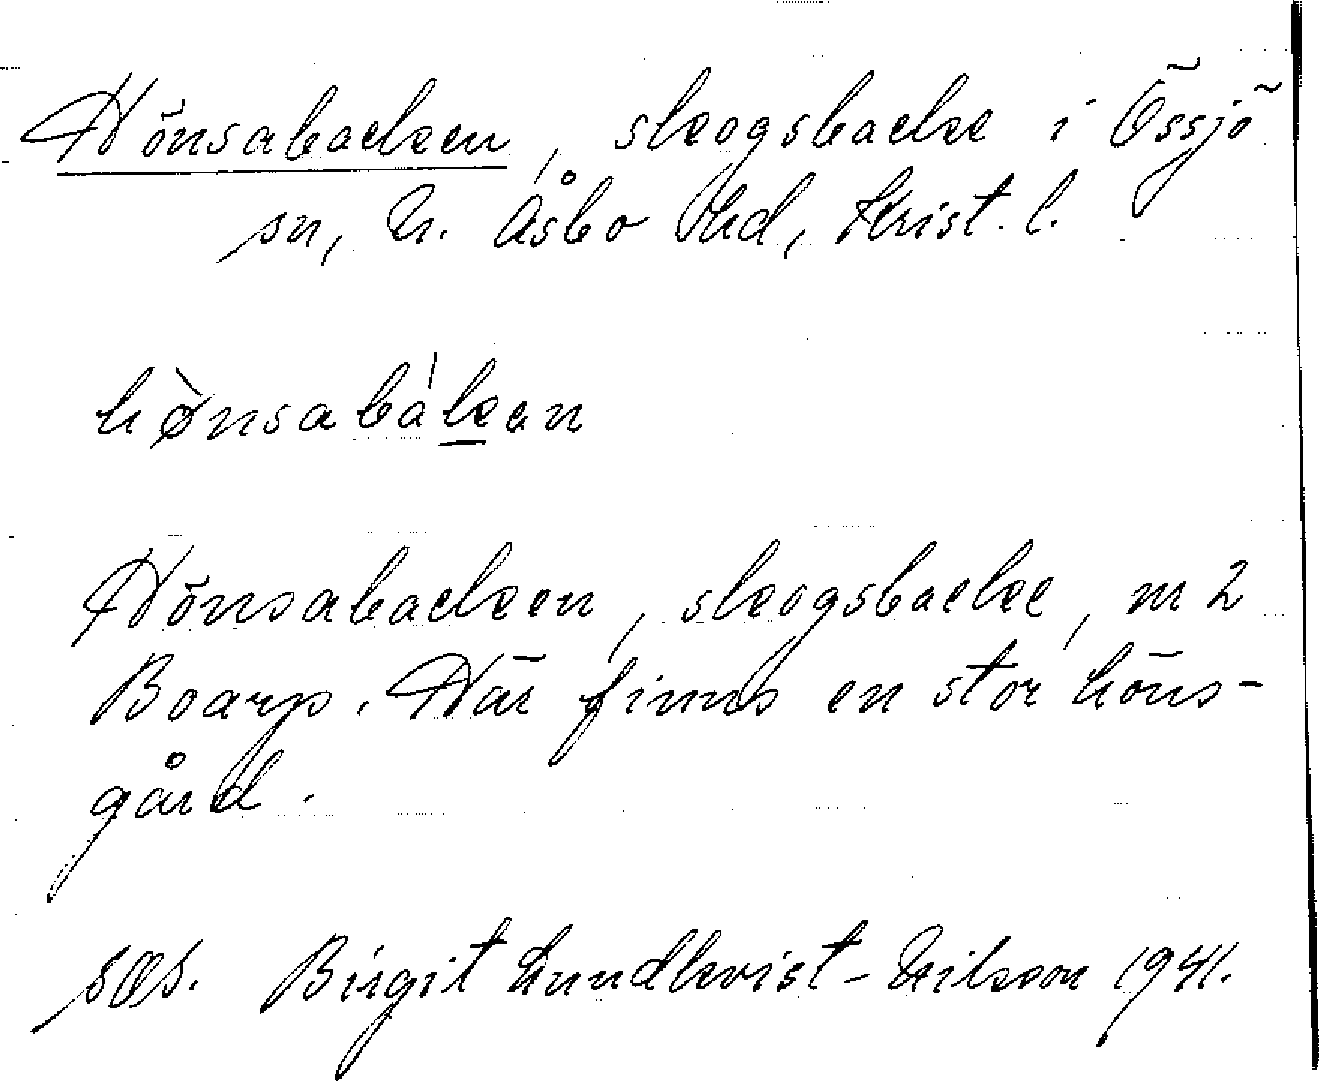 Hönsabacken, skogsbacke i Össjö
sn, N. Åsbo hd, Krist. l.
hø̀nsabákan
Hönsabacken, skogsbacke, nr 2
Boarp. Här finns en stor höns-
gård.
Birgit Lundkvist-Nilsson 1941.